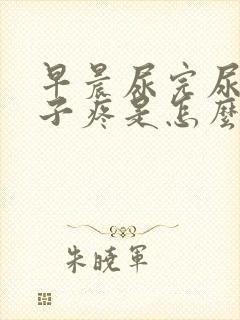 早晨尿完尿
子疼是怎麼
朱曉軍